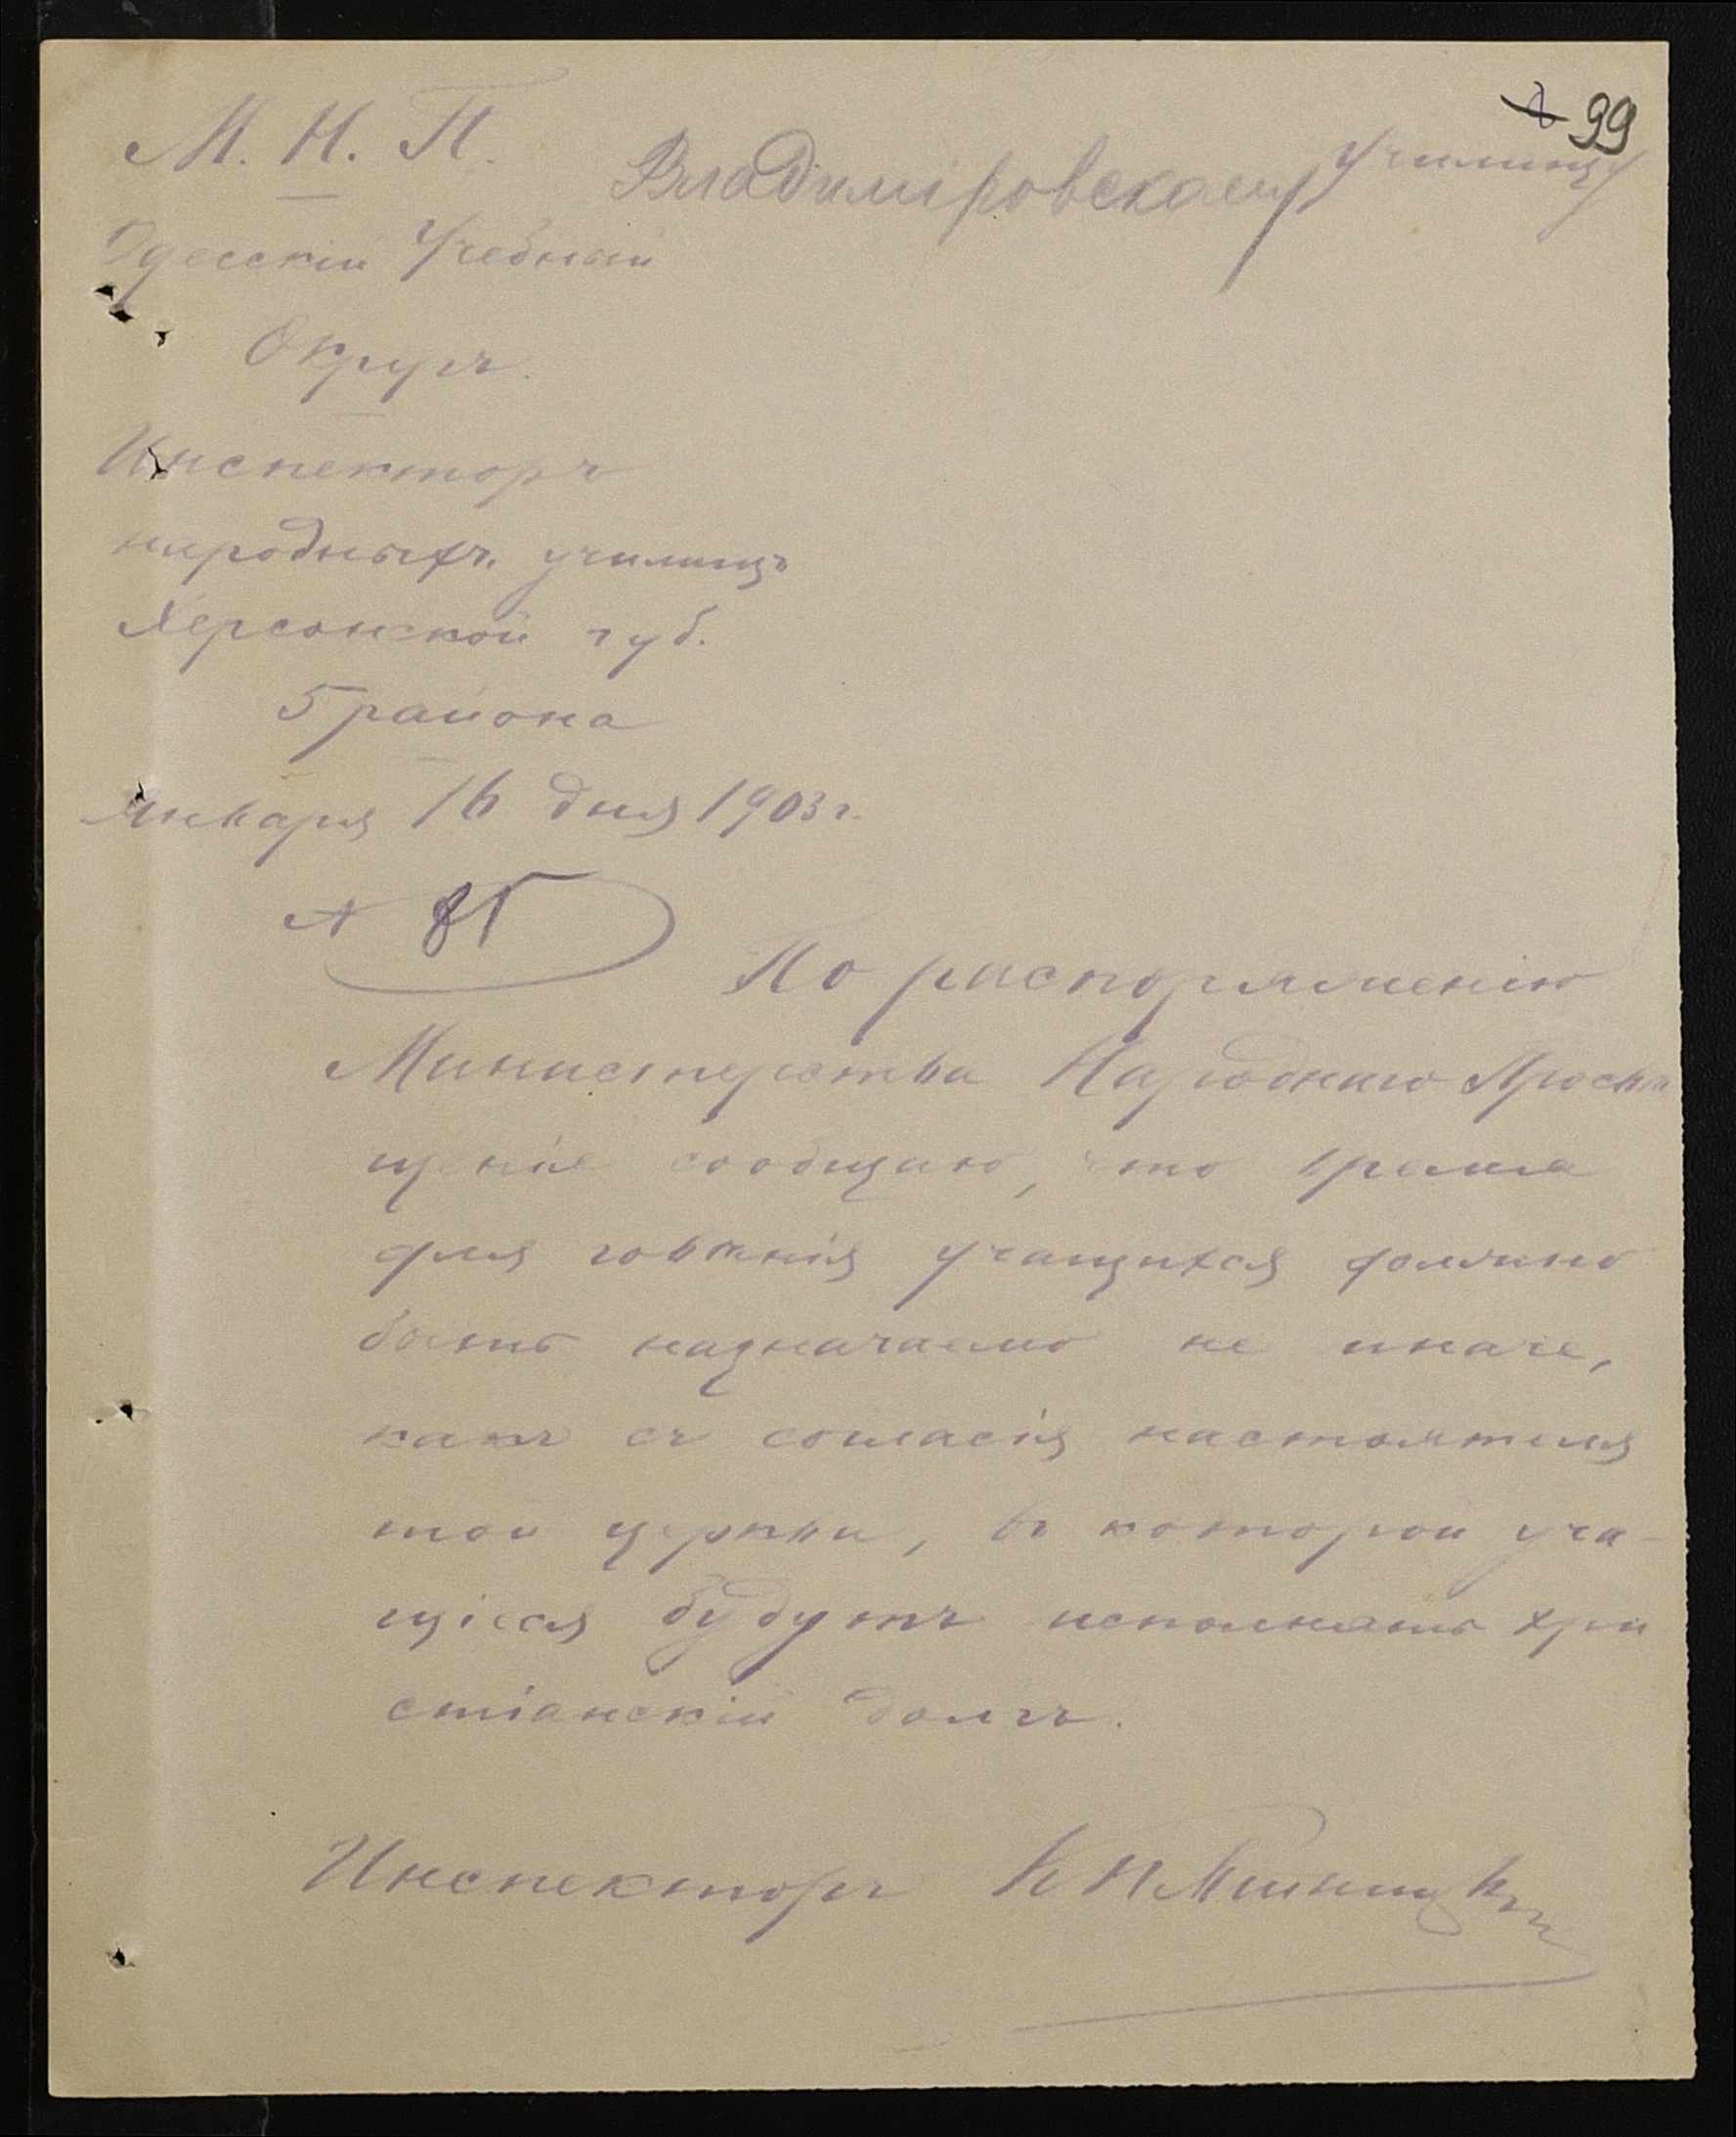 99
М. Н. П.
Владимiровскому училищу
Одесскiй Учебный
Округъ.
Инспекторъ
народныхъ училищъ
Херсонской губ.
5 района
Января 16 дня 1903 г.
№ 85
По распоряженiю
Министерства Народнаго Просвѣ
щенiя сообщаю, что время
для говѣнiя учащихся должно
быть назначаемо не иначе,
какъ съ согласiя настоятеля
той церкви, въ которой уча-
щiеся будутъ исполнять хри
стiанскiй долгъ.
Инспекторъ